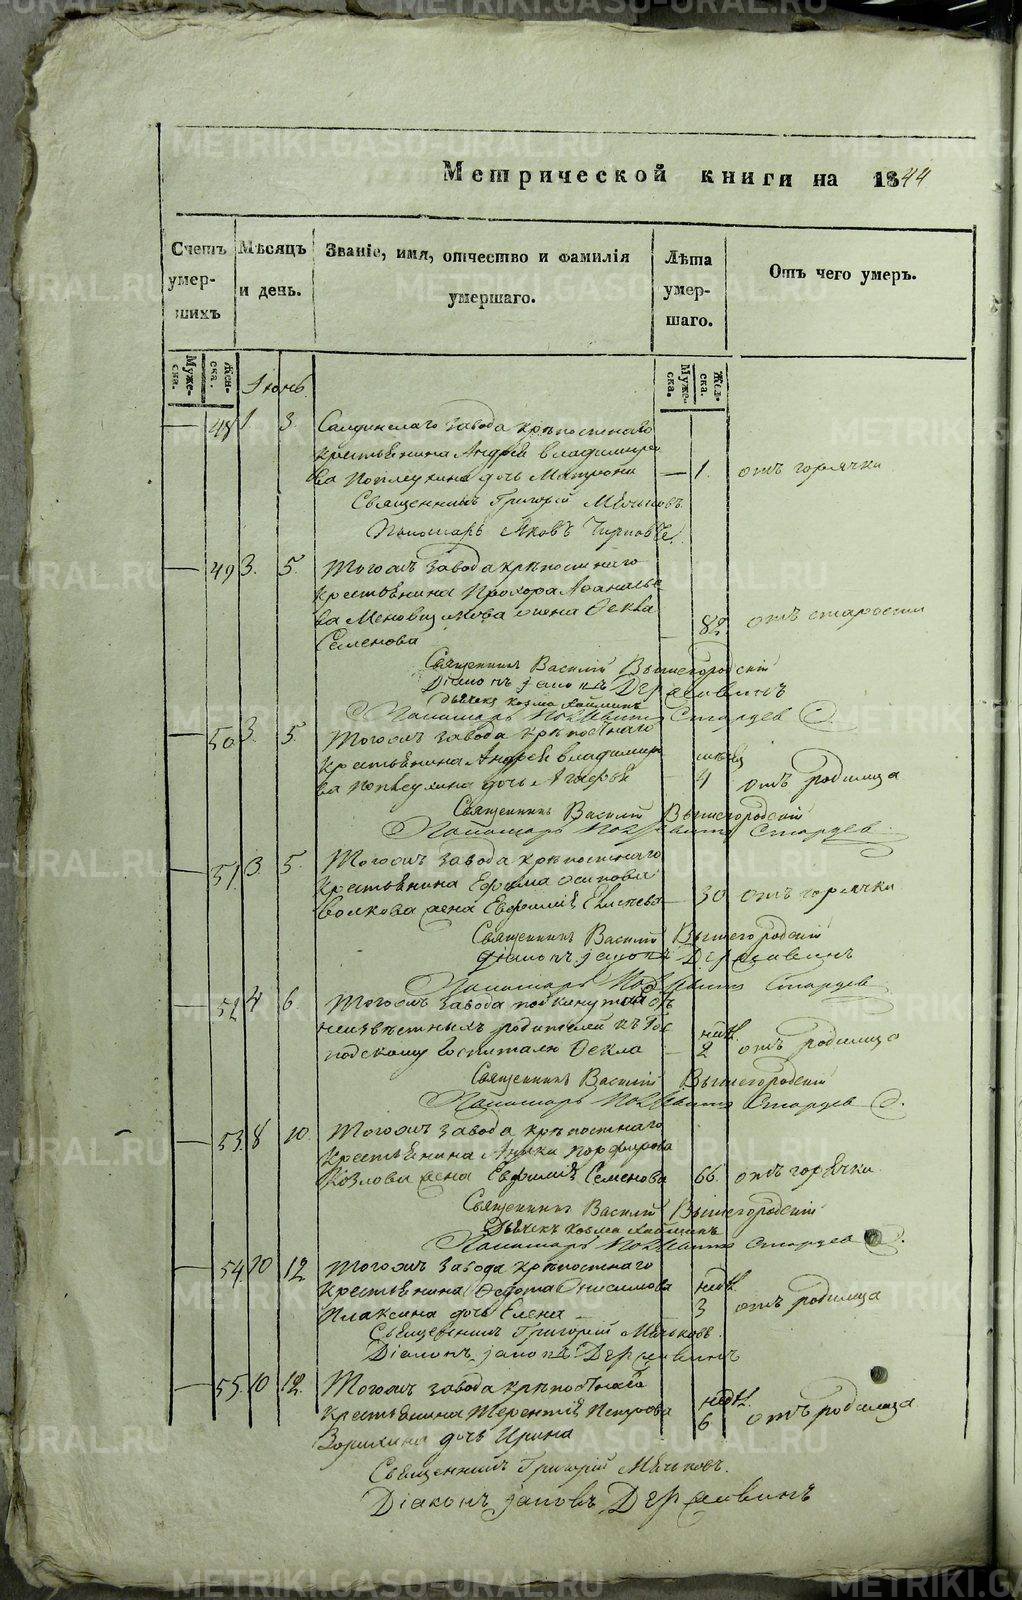 Метрической книги на 1844
Счетъ умер- шихъ
Мѣсяцъ и день.
Званіе, имя, отчество и фамилія умершаго.
Лѣта умер- шаго.
Отъ чего умеръ.
Муже- ска.
Жен- ска.
Муже- ска.
Жен- ска.
Іюнь.
48 1 3. Салдинскаго завода крѣпостнаго
крестьянина Андрея Владимиро
ва дочь Матрона — 1. отъ горячки
Священникъ Григорій
Пономарь Яковъ
49 3. 5. Тогожъ завода крѣпостнаго
крестьянина Прохора Аѳанасье
ва жена Ѳекла
Семенова — 82 отъ старости
Священникъ Василій Вышегородскій
Діаконъ Іаковъ Державинъ
Дьячекъ Козма
Пономарь Стардев
50 3. 5. Тогожъ завода крѣпостнаго
крестьянина Андрея Владимиро
ва дочь — 4 отъ родимца
Священникъ Василій Вышегородскій
Пономарь Стардев
51 3 5. Тогожъ завода крѣпостнаго
крестьянина Ефима Осипова
Волкова жена Евфимія — 30 отъ горячки
Священникъ Василій Вышегородскій
Діаконъ Іаковъ Державинъ
Пономарь Стардев
52 4 6 Тогожъ завода подкинутая отъ
неизвѣстныхъ родителей къ Гос
подскому госпиталю Ѳекла — недѣ. 2 отъ родимца
Священникъ Василій Вышегородскій
Пономарь Стардев
53. 8 10. Тогожъ завода крѣпостнаго
крестьянина Аники Порфирова
Козлова жена Евфимія Семенова 66. отъ горячки
Священникъ Василій Вышегородскій
Дьячекъ Козма
Пономарь Стардев
54. 10 12 Тогожъ завода крѣпостнаго
крестьянина Ѳедота Онисимова
Плаксина дочь Елена — недѣ. 3 отъ родимца
Священникъ Григорій
Діаконъ Іаковъ Державинъ
55. 10 12. Тогожъ завода крѣпостнаго
крестьянина Терентія Петрова
дочь Ирина недѣ. 6 отъ родимца
Священникъ Григорій
Діаконъ Іаковъ Державинъ
METRIKI.GASO-URAL.RU